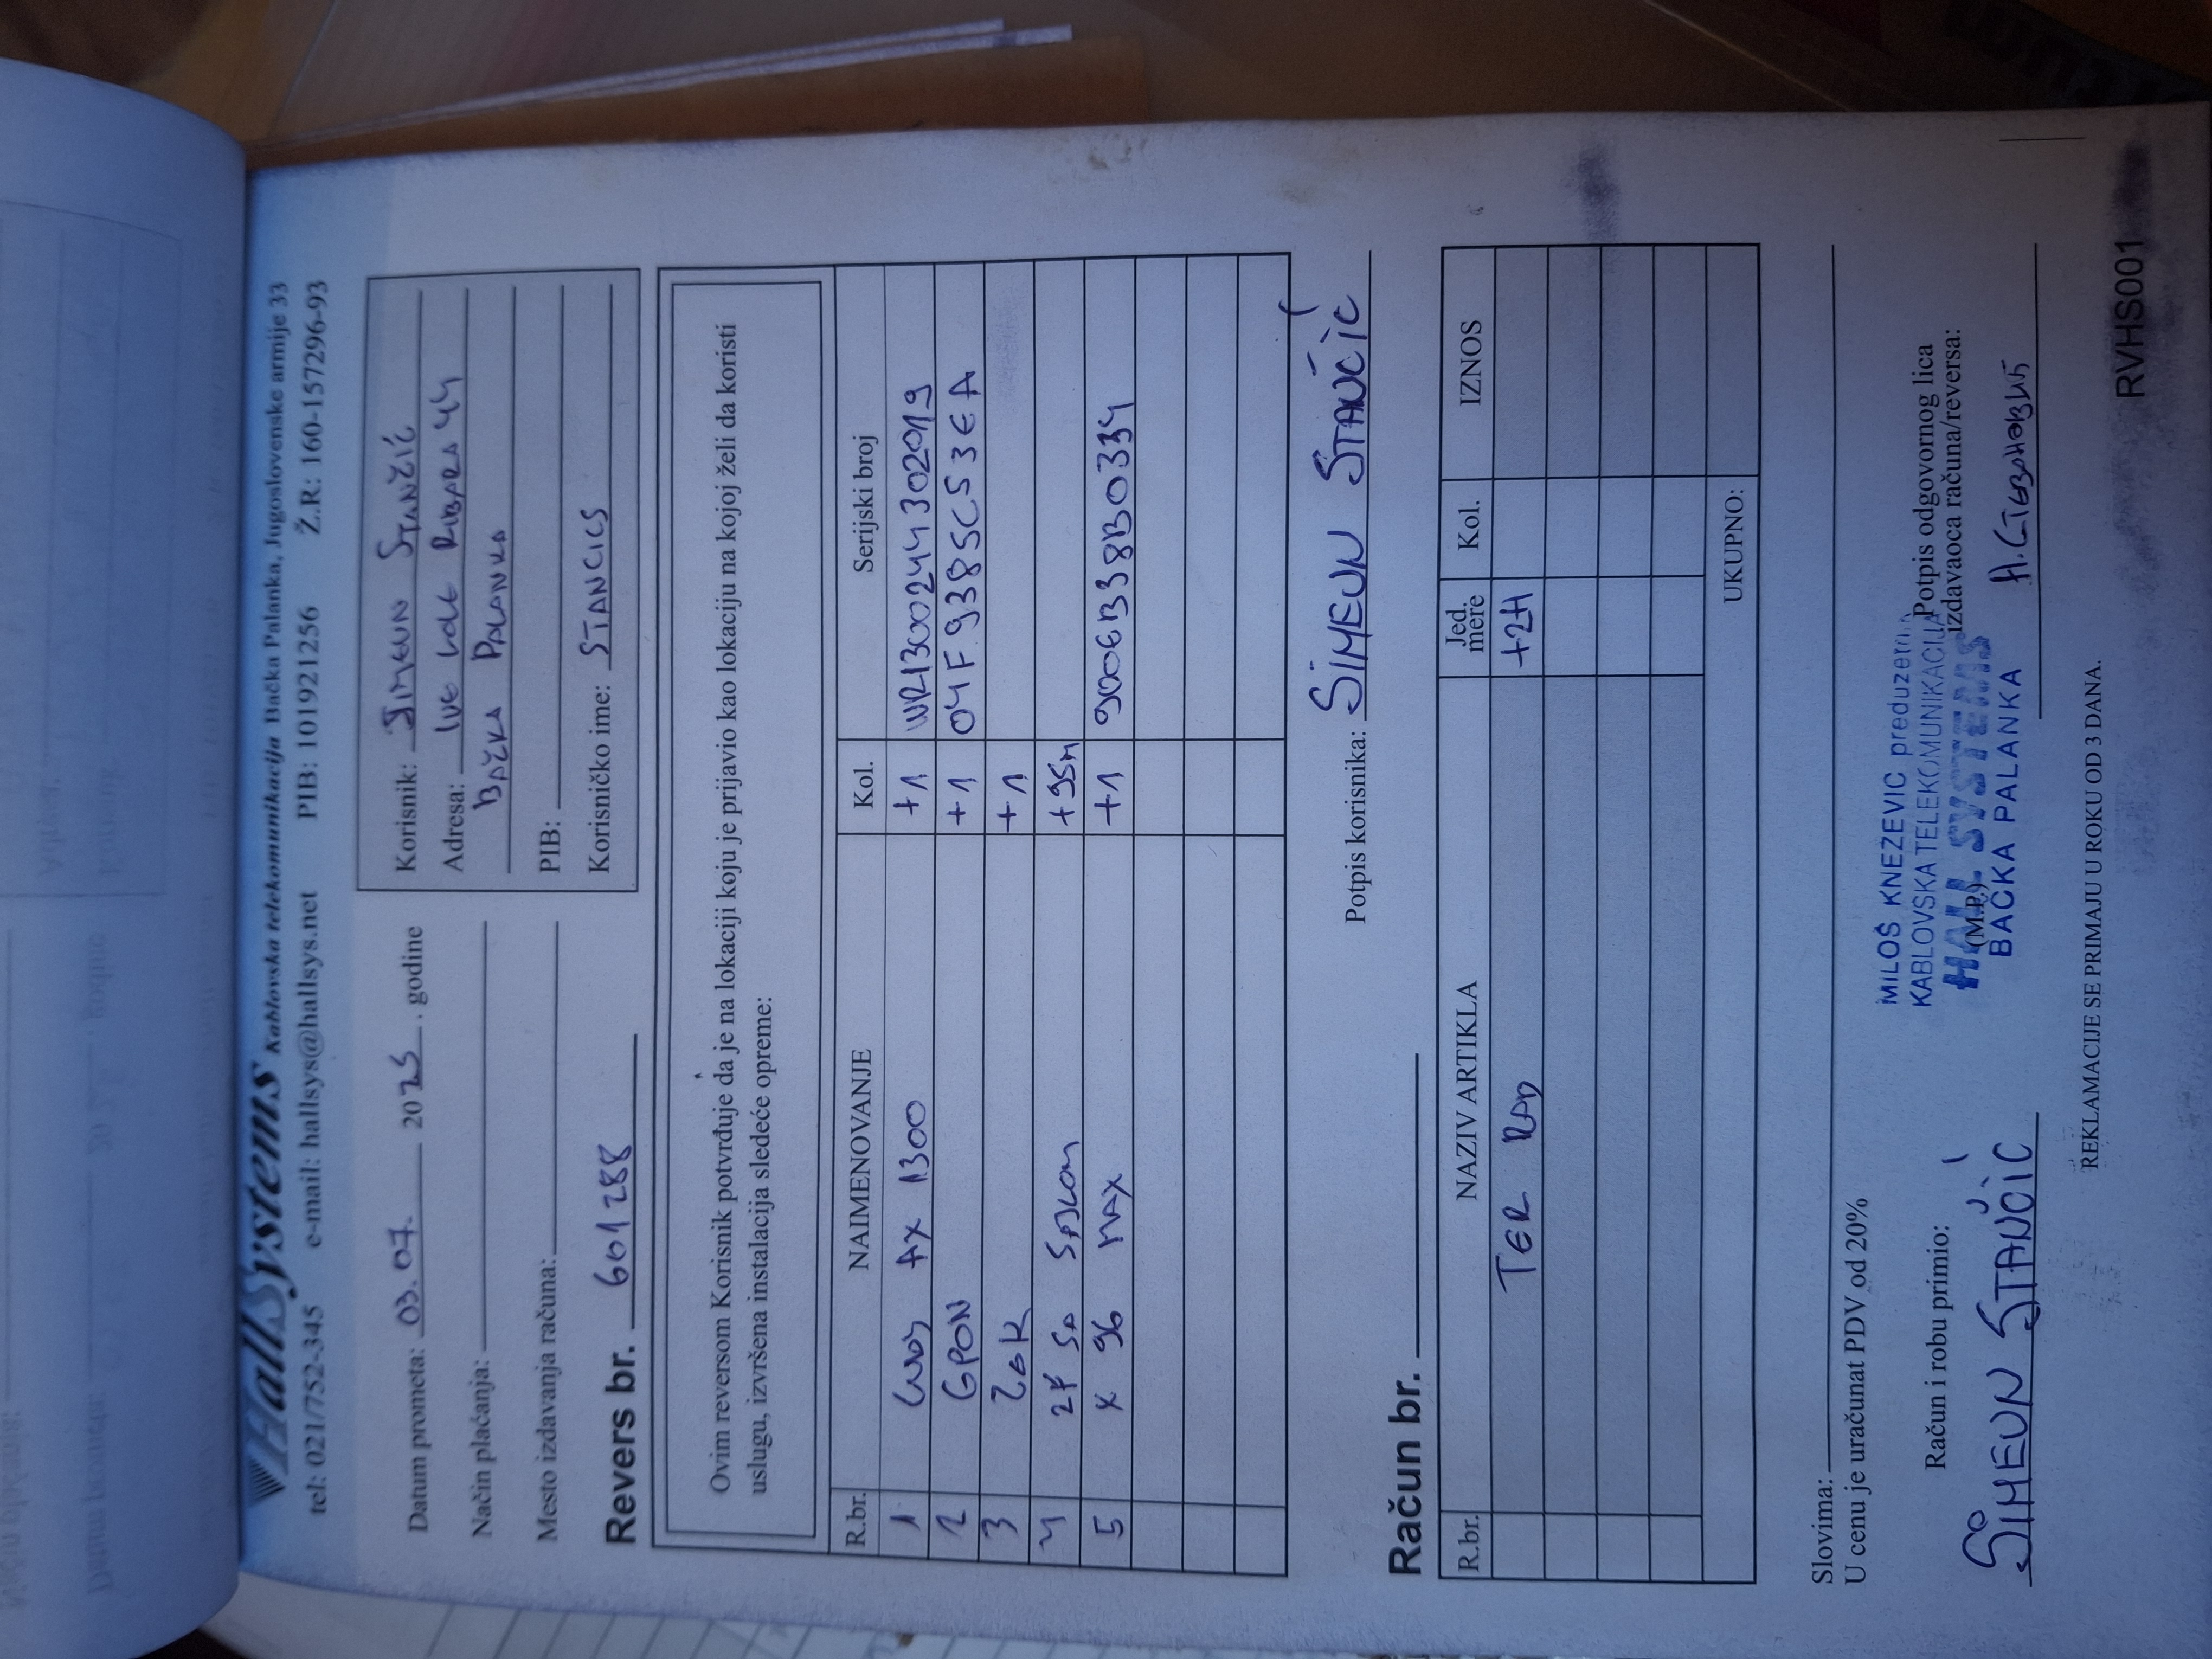 HallSystems Kablovska telekomunikacija Bačka Palanka, Jugoslovenske armije 33
tel: 021/752-345 e-mail: hallsys@hallsys.net PIB: 101921256 Ž.R: 160-157296-93
Datum prometa: 03.07. 2025. godine
Način plaćanja:
Mesto izdavanja računa:
Korisnik: SIMEUN STANČIĆ
Adresa: IVE LOLE RIBARA 44
BAČKA PALANKA
PIB:
Korisničko ime: STANCICS
Revers br. 601288
Ovim reversom Korisnik potvrđuje da je na lokaciji koju je prijavio kao lokaciju na kojoj želi da koristi
uslugu, izvršena instalacija sledeće opreme:
R.br. NAIMENOVANJE Kol. Serijski broj
1 AX 1300 +1 WR1300244302019
2 GPON +1 04F9385C53EA
3 +1
4 +95M
5 X 96 MAX +1 9006B338B0334
Potpis korisnika: SIMEUN STANČIĆ
Račun br.
R.br. NAZIV ARTIKLA Jed. mere Kol. IZNOS
TER RAD +2H
UKUPNO:
Slovima:
U cenu je uračunat PDV od 20%
Račun i robu primio:
SIMEUN STANČIĆ
MILOŠ KNEZEVIC preduzetnik
KABLOVSKA TELEKOMUNIKACIJA
HALL SYSTEMS
BAČKA PALANKA
(M.P.)
Potpis odgovornog lica
izdavaoca računa/reversa:
REKLAMACIJE SE PRIMAJU U ROKU OD 3 DANA.
RVHS001